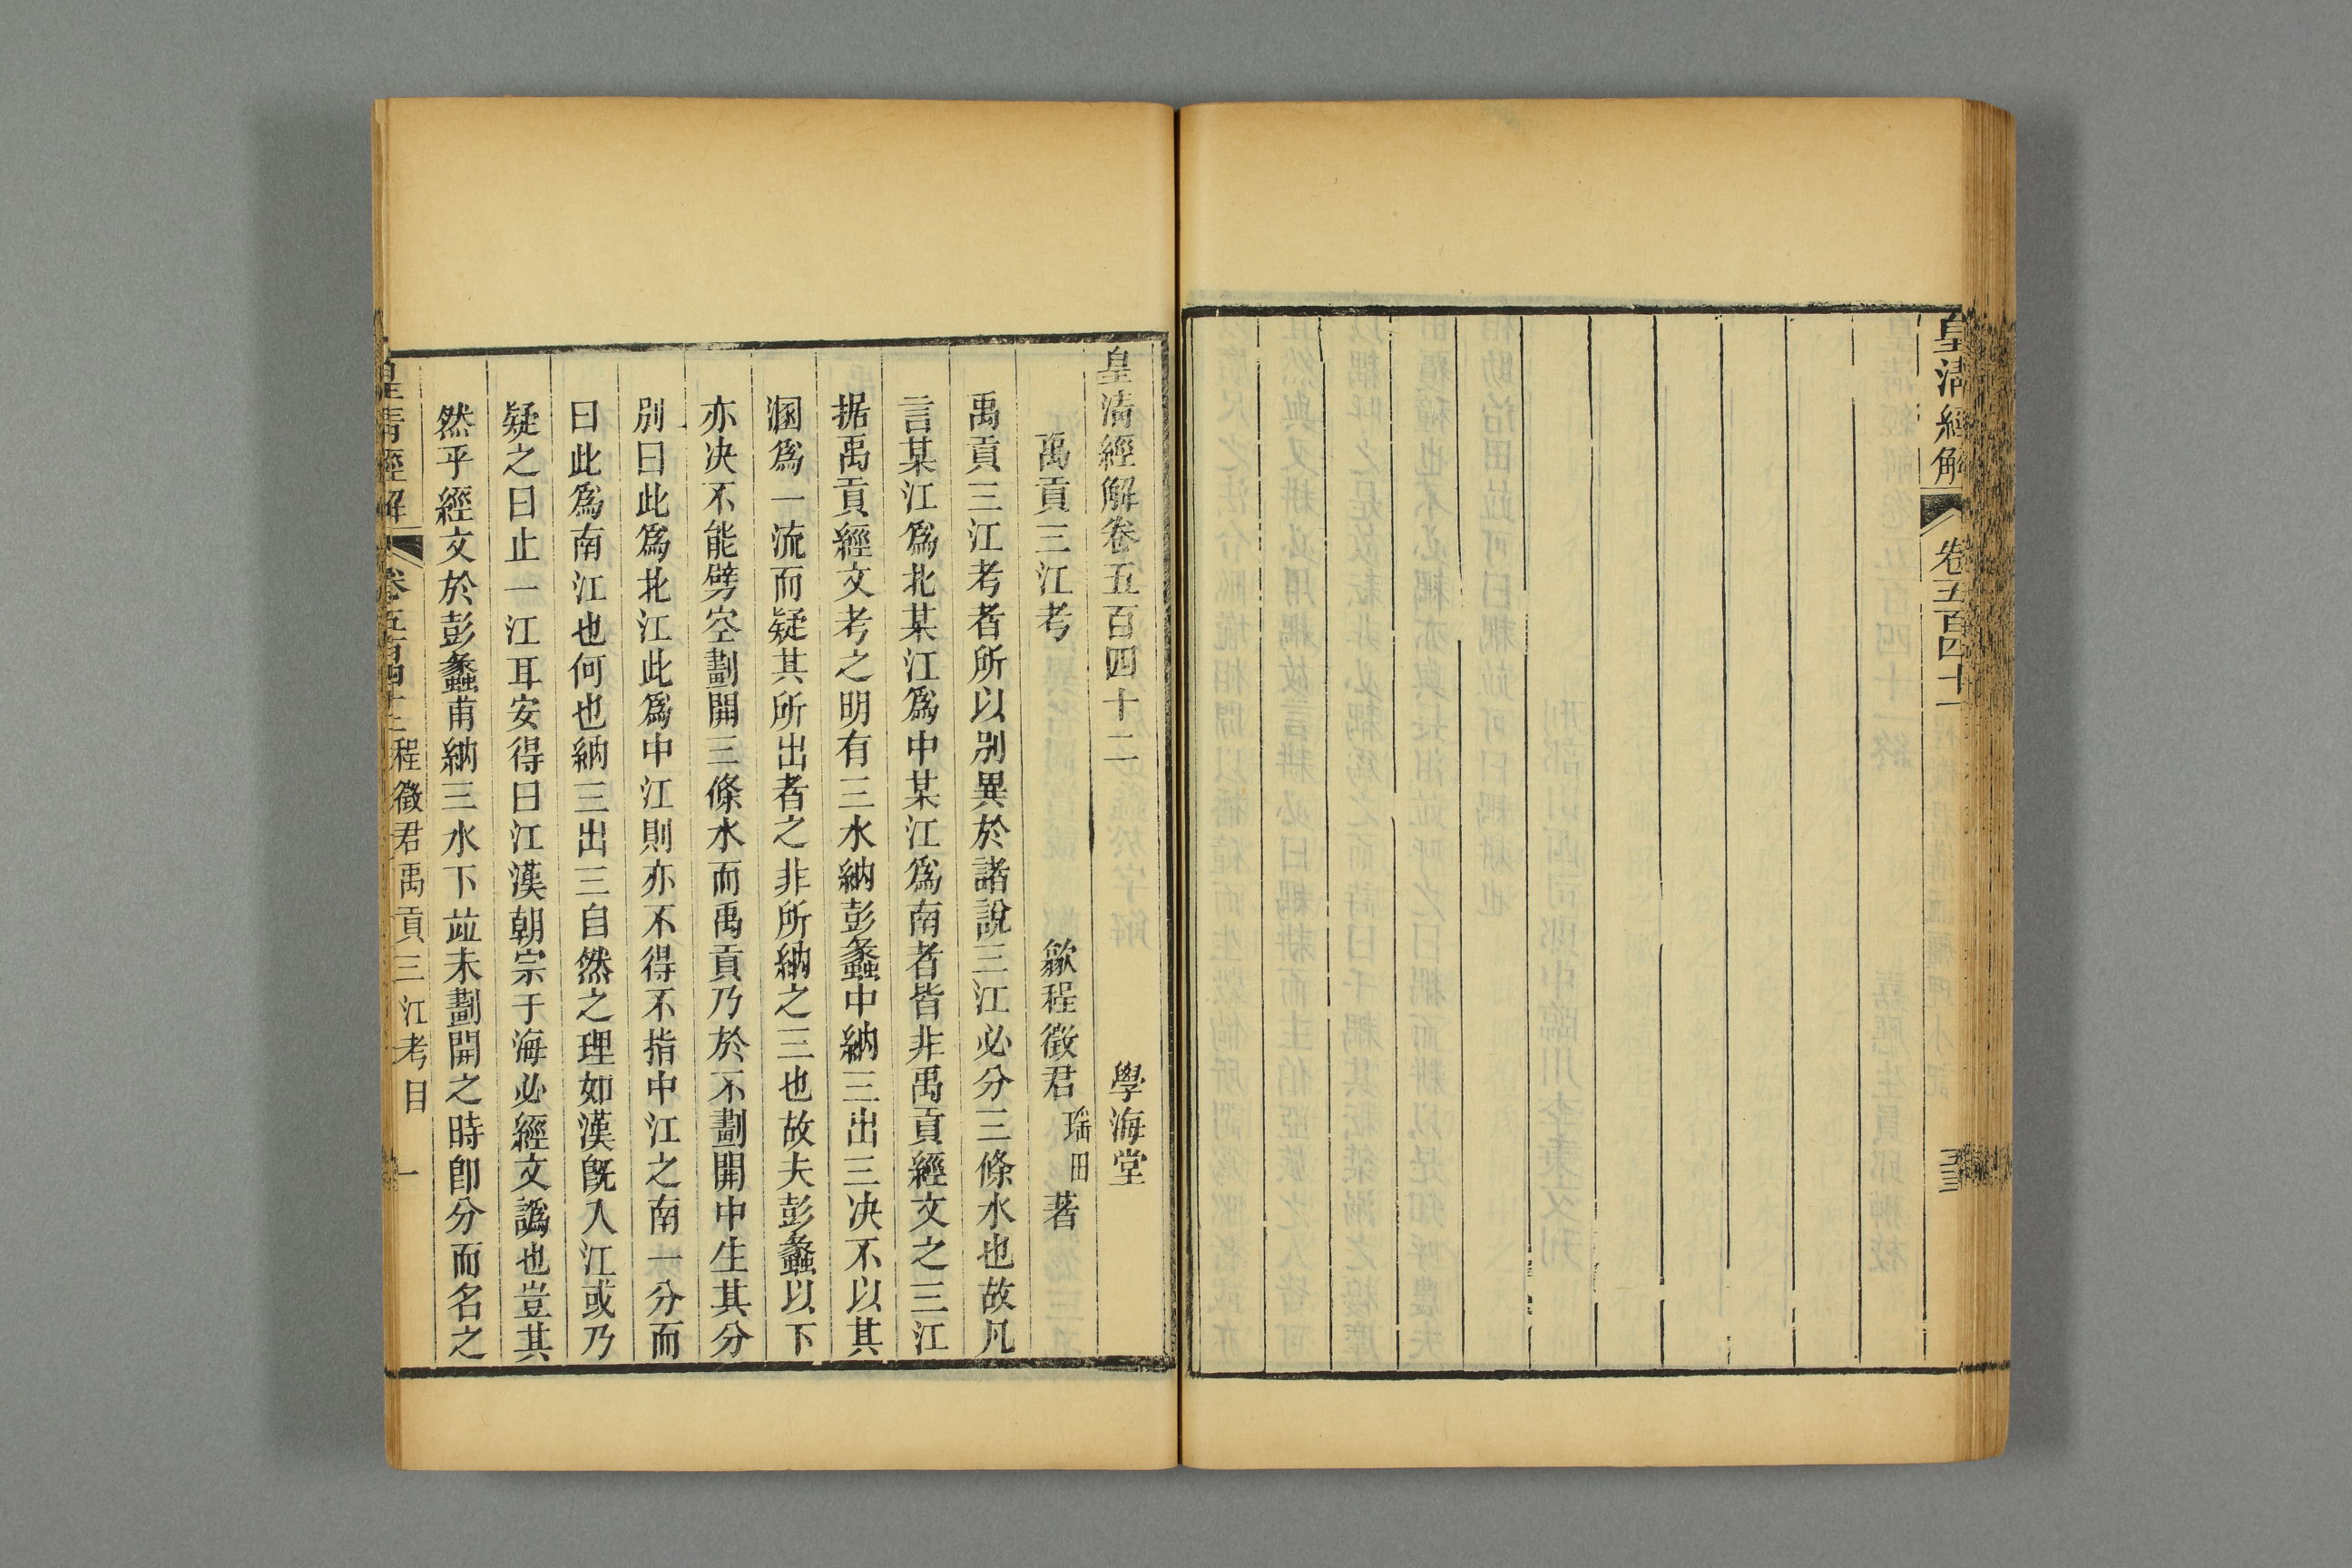 皇清經解
卷五百四十一
皇清經解卷五百四十二
學海堂
禹貢三江考
歙程徵君瑤田著
禹貢三江考者所以別異於諸說三江必分三條水也故凡
言某江爲北某江爲中某江爲南者皆非禹貢經文之三江
据禹貢經文考之明有三水納彭蠡中納三出三决不以其
溷爲一流而疑其所出者之非所納之三也故夫彭蠡以下
亦决不能劈空劃開三條水而禹貢乃於不劃開中生其分
別曰此爲北江此爲中江則亦不得不指中江之南一分而
曰此爲南江也何也納三出三自然之理如漢旣入江或乃
疑之曰止一江耳安得曰江漢朝宗于海必經文譌也豈其
然乎經文於彭蠡甫納三水下竝未劃開之時卽分而名之
皇清經解 卷五百四十二 程徵君禹貢三江考目 一